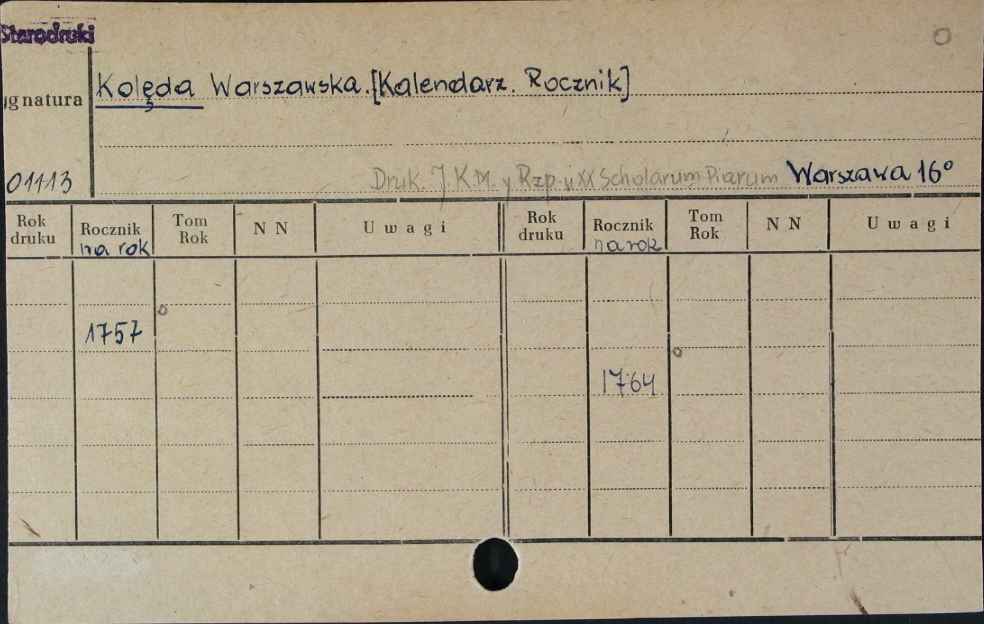 Starodruki
Kolęda Warszawska. [Kalendarz. Rocznik]
ygnatura
01113
Druk. J.K.M. y Rzp. y XX Scholarum Piarum Warszawa 16°
Rok druku Rocznik na rok Tom Rok N N U w a g i Rok druku Rocznik na rok Tom Rok N N U w a g i
1757
1764